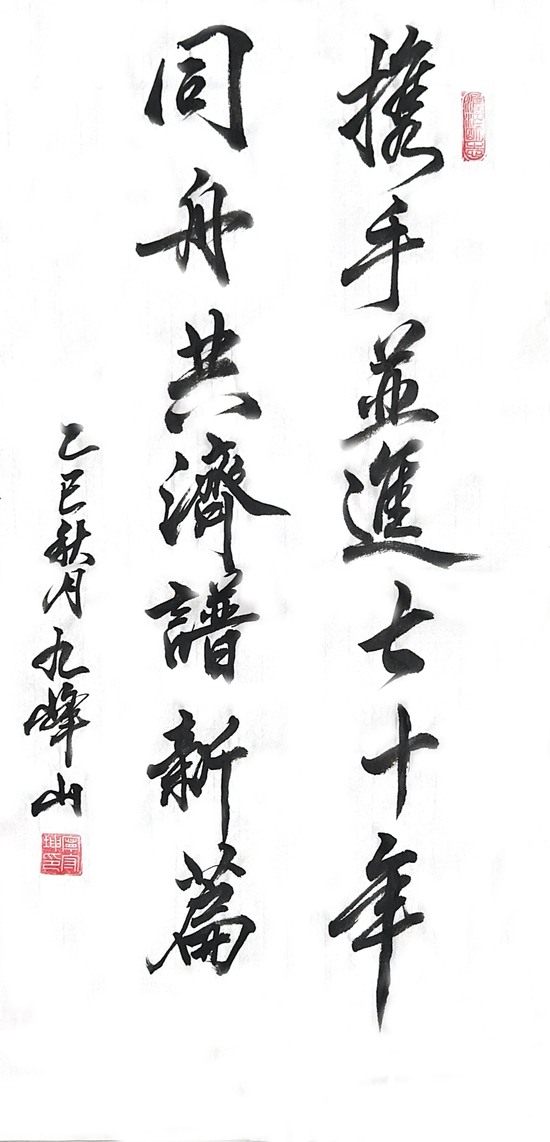 携手並進七十年
同舟共濟譜新篇
乙巳秋月九峰山